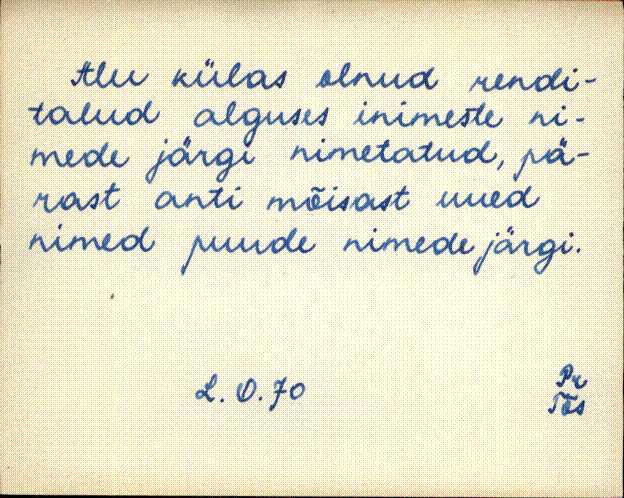 Alu külas olnud rendi-
talud alguses inimeste ni-
mede järgi nimetatud, pä-
rast anti mõisast uued
nimed puude nimede järgi.
L. O. 70
Pr
Tõs